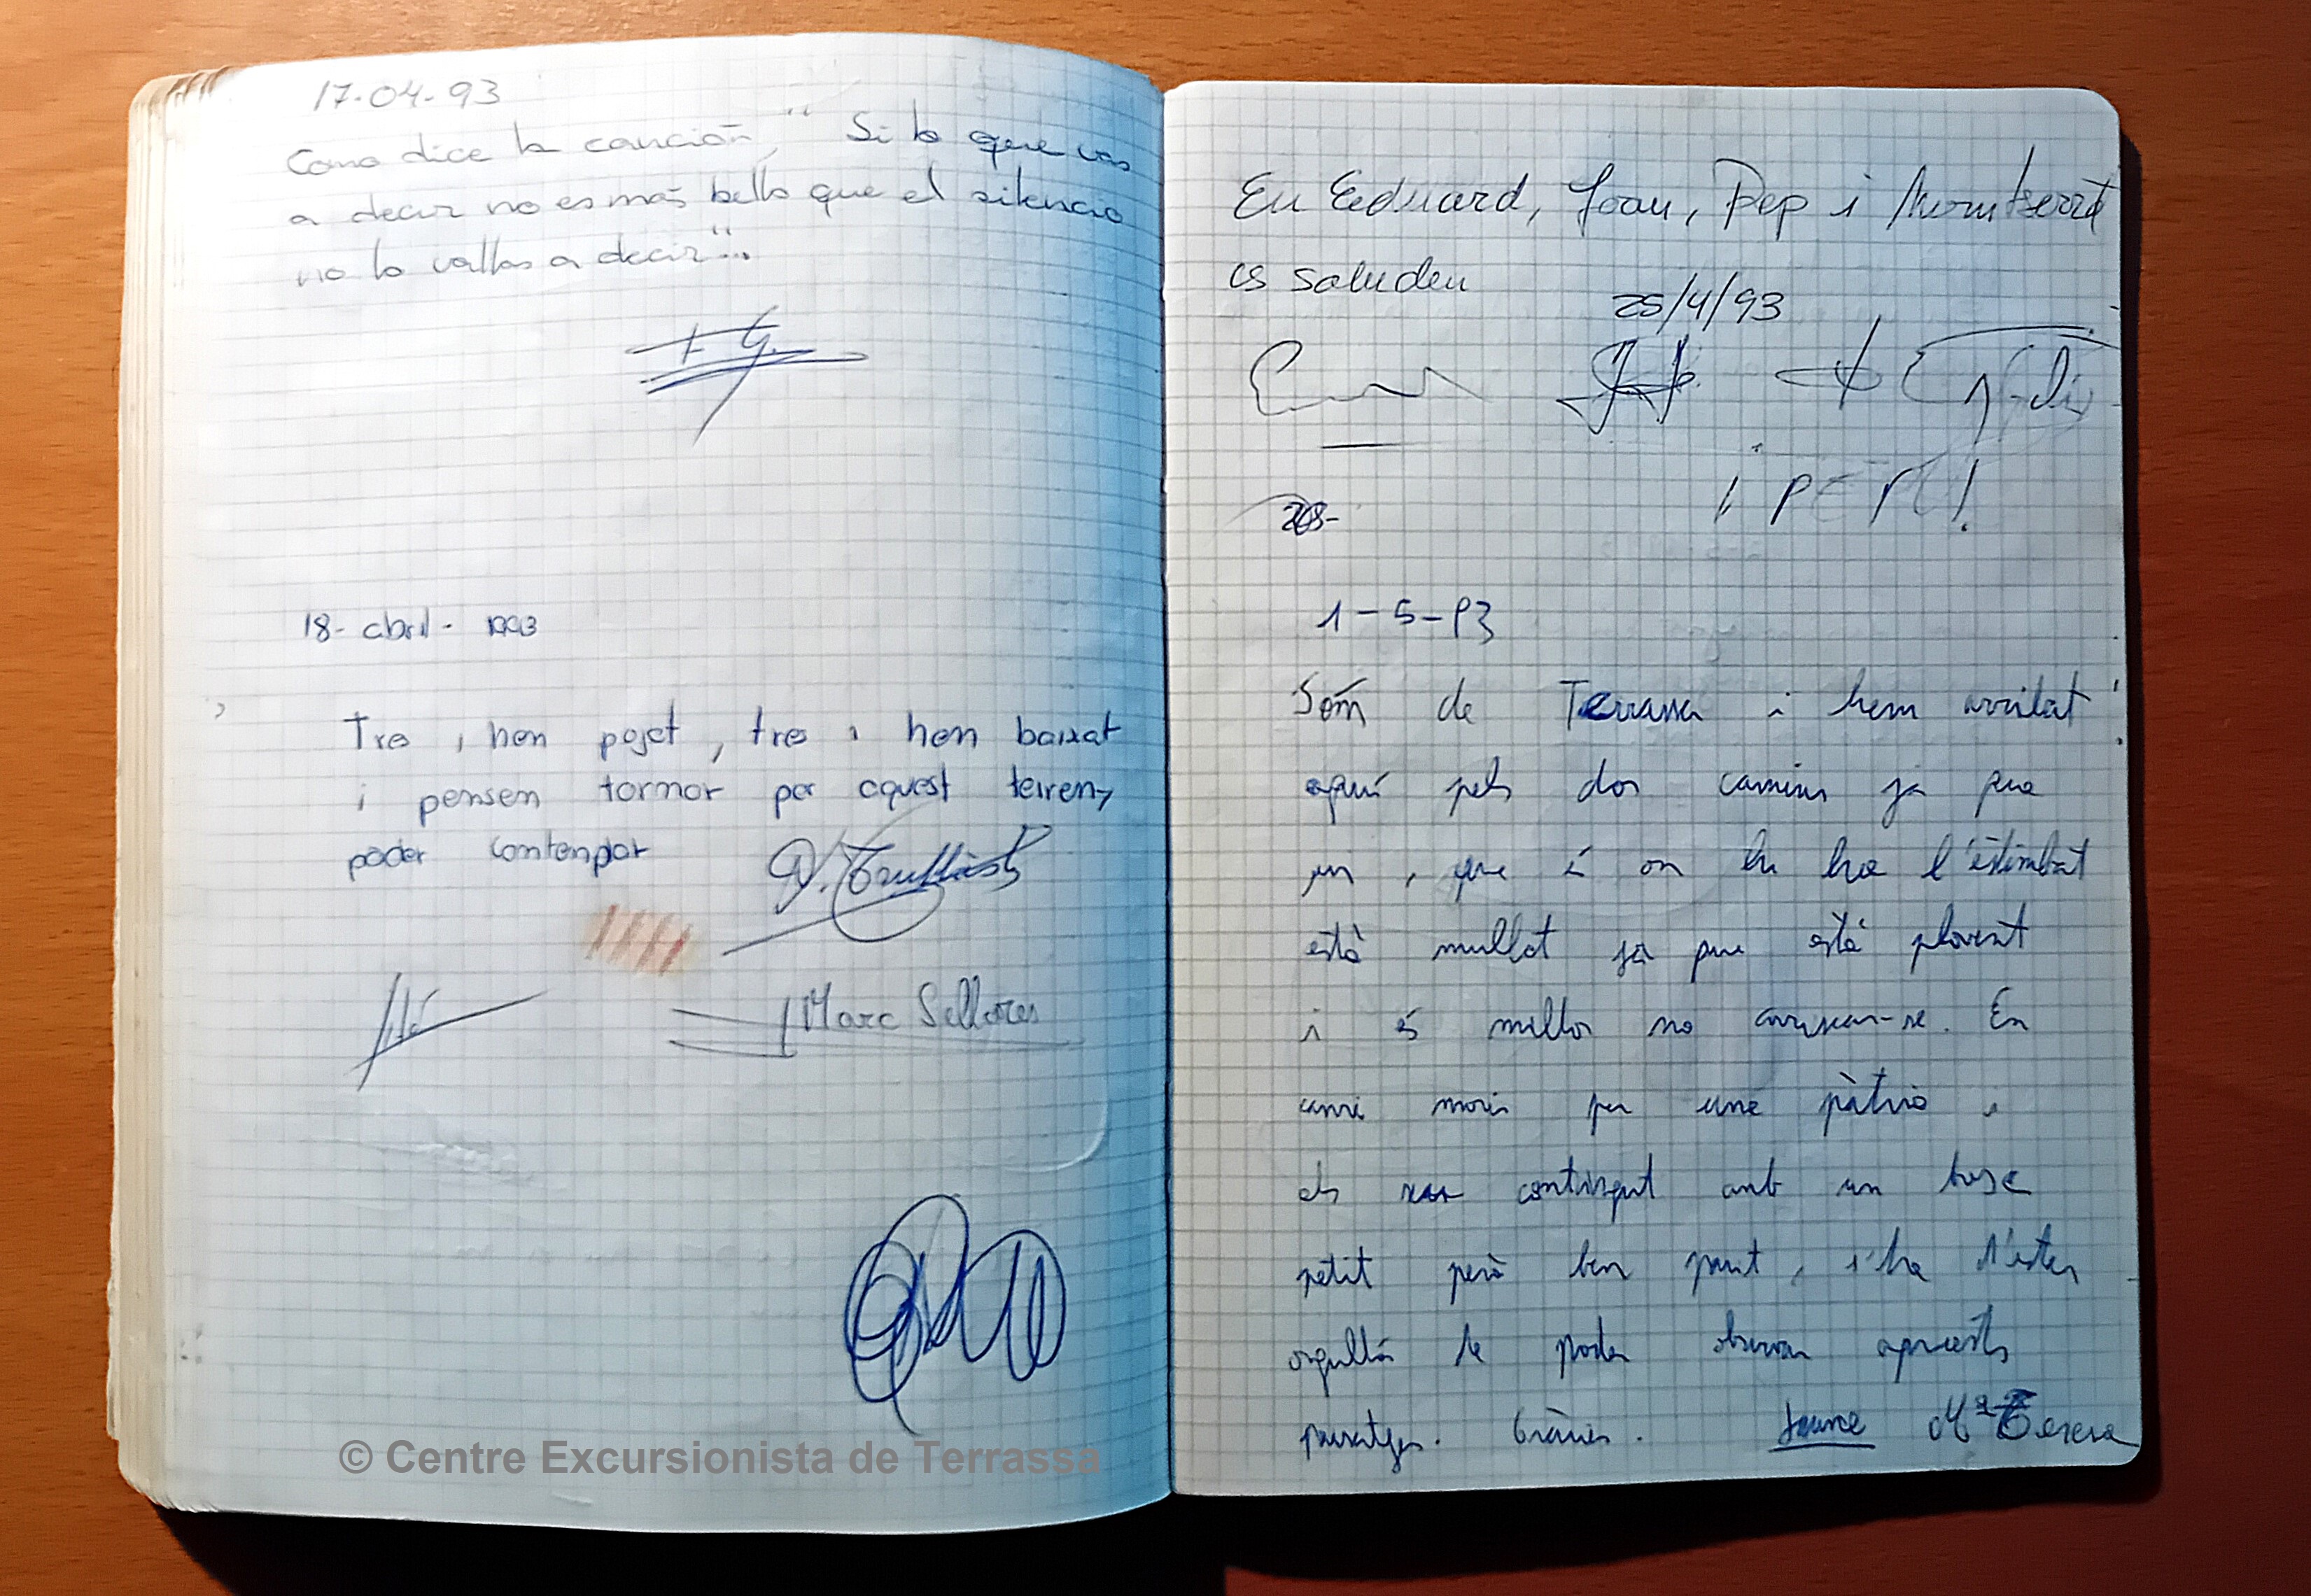 17-04-93
Como dice la canción, "Si lo que vas
a decir no es más bello que el silencio
no lo vallas a decir"...
F. G.
18- abril - 1993
Tres i hen pojat, tres i hen baixat
i pensem tornar per aquest terreny
poder contemplar
Marc Sellares
En Eduard, Joan, Pep i Montserrat
es saluden
25/4/93
1-5-93
Sóm de Terrassa i hem arribat
aquí pels dos camins ja que
un, que és on hi ha l'estimbat
està mullat ja que està plovent
i és millor no arriscar-se. En
canvi morir per una pàtria i
contingut amb un bosc
petit però ben parit, s'ha d'estar
orgullós de poder observar aquests
paisatges. Gràcies. Jaume Mª Teresa
© Centre Excursionista de Terrassa